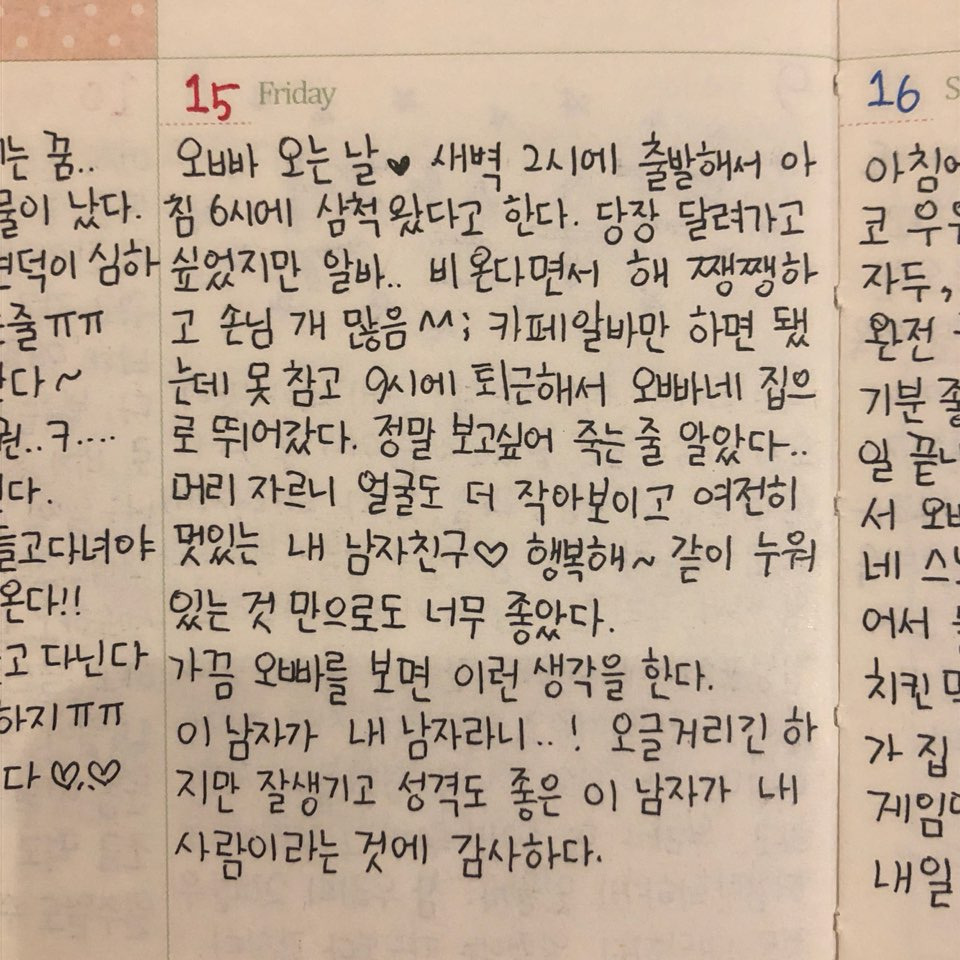 는 꿈..
물이 났다.
변덕이 심하
줄ㅠㅠ
다~
..ㅋ....
다.
들고다녀야
온다!!
고 다닌다
하지ㅠㅠ
다♡,,♡
15 Friday
오빠 오는 날♥ 새벽 2시에 출발해서 아
침 6시에 삼척왔다고 한다. 당장 달려가고
싶었지만 알바.. 비온다면서 해 쨍쨍하
고 손님 개 많음^^; 카페알바만 하면 됐
는데 못참고 9시에 퇴근해서 오빠네 집으
로 뛰어갔다. 정말 보고싶어 죽는줄 알았다..
머리 자르니 얼굴도 더 작아보이고 여전히
멋있는 내 남자친구♡ 행복해~ 같이 누워
있는 것 만으로도 너무 좋았다.
가끔 오빠를 보면 이런 생각을 한다.
이 남자가 내 남자라니..! 오글거리긴 하
지만 잘생기고 성격도 좋은 이 남자가 내
사람이라는 것에 감사하다.
16 S
아침에
코 우유
자두,
완전
기분 좋
일 끝나
서 오빠
네 스노
어서
치킨 먹
가 집
게임
내일